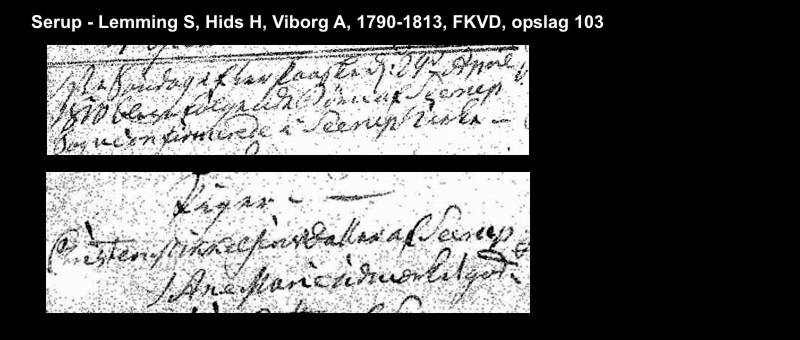 Serup - Lemming S, Hids H, Viborg A, 1790-1813, FKVD, opslag 103
1ste Søndag efter Paaske d: 29de April
1810 blev følgende Børn af Seerup
Sogn confirmerede i Seerup Kirke -
Piger -
Christen Mikkelsens datter af Seerup
Ane Marie